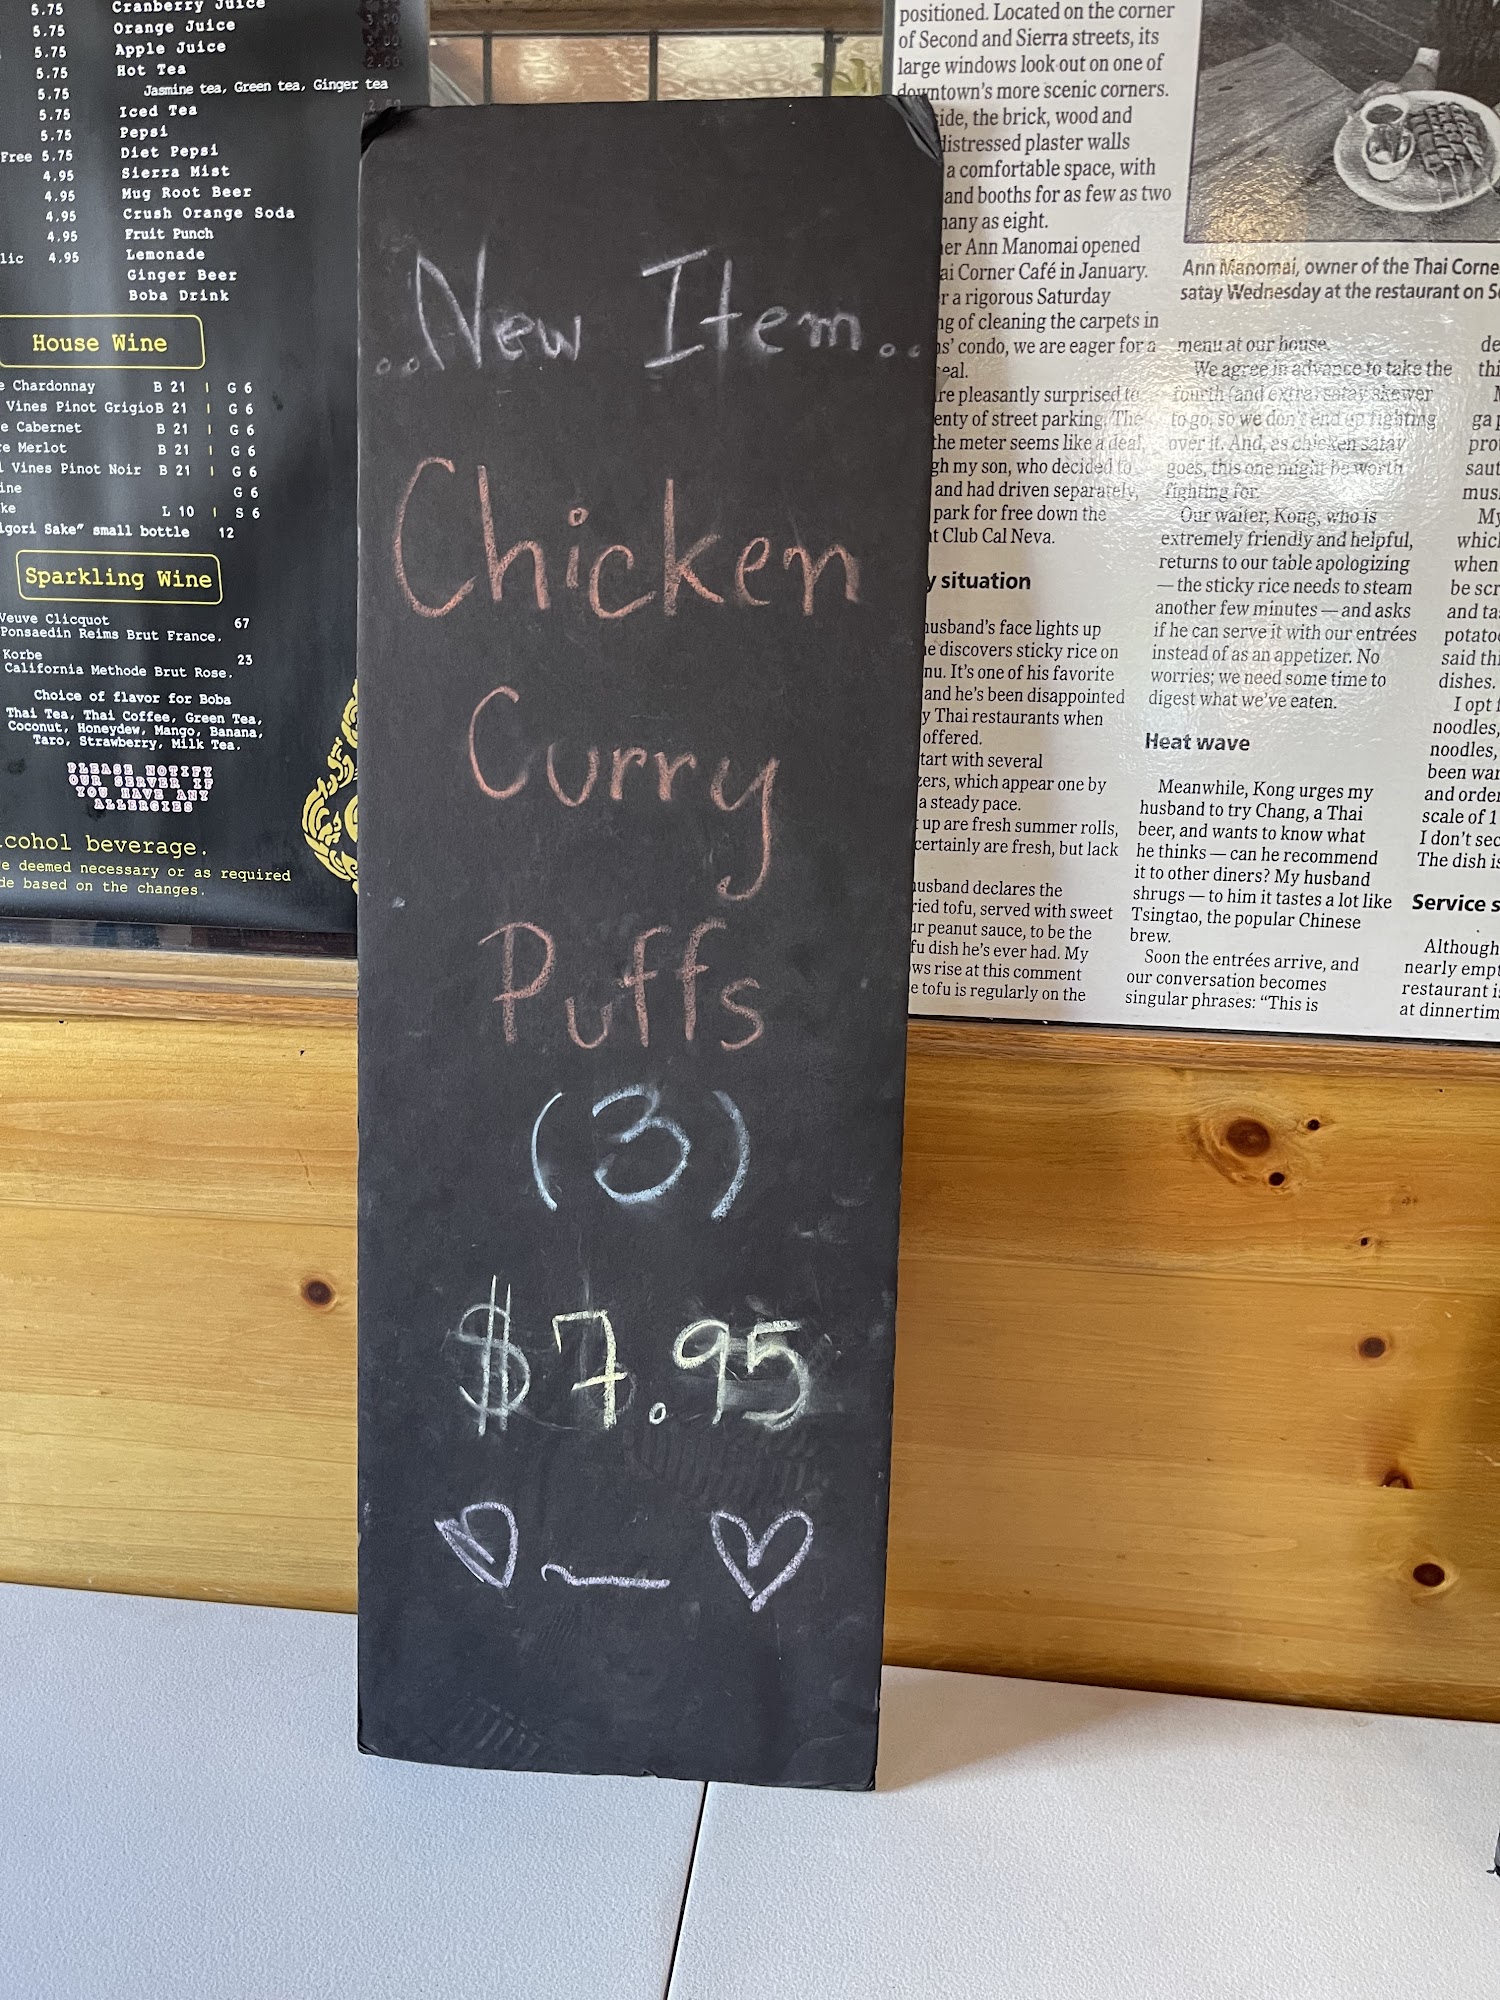 5.75 Cranberry Juice
5.75 Orange Juice 3.00
5.75 Apple Juice 3.00
5.75 Hot Tea 2.50
5.75 Jasmine tea, Green tea, Ginger tea
5.75 Iced Tea
5.75 Pepsi
Free 5.75 Diet Pepsi
4.95 Sierra Mist
4.95 Mug Root Beer
4.95 Crush Orange Soda
4.95 Fruit Punch
4.95 Lemonade
Ginger Beer
Boba Drink
House Wine
Chardonnay B 21 | G 6
Vines Pinot Grigio B 21 | G 6
Cabernet B 21 | G 6
Merlot B 21 | G 6
Vines Pinot Noir B 21 | G 6
G 6
L 10 | S 6
Sake" small bottle 12
Sparkling Wine
Veuve Clicquot 67
Ponsaedin Reims Brut France.
Korbe 23
California Methode Brut Rose.
Choice of flavor for Boba
Thai Tea, Thai Coffee, Green Tea,
Coconut, Honeydew, Mango, Banana,
Taro, Strawberry, Milk Tea.
PLEASE NOTIFY
OUR SERVER IF
YOU HAVE ANY
ALLERGIES
beverage.
deemed necessary or as required
based on the changes.
..New Item..
Chicken
Curry
Puffs
(3)
$7.95
positioned. Located on the corner
of Second and Sierra streets, its
large windows look out on one of
downtown's more scenic corners.
the brick, wood and
distressed plaster walls
a comfortable space, with
and booths for as few as two
as eight.
Ann Manomai opened
Corner Café in January.
a rigorous Saturday
of cleaning the carpets in
condo, we are eager for a
pleasantly surprised to
of street parking. The
the meter seems like a deal,
my son, who decided to
and had driven separately,
park for free down the
Club Cal Neva.
situation
husband's face lights up
discovers sticky rice on
It's one of his favorite
and he's been disappointed
Thai restaurants when
offered.
with several
which appear one by
a steady pace.
up are fresh summer rolls,
certainly are fresh, but lack
husband declares the
tofu, served with sweet
peanut sauce, to be the
dish he's ever had. My
rise at this comment
tofu is regularly on the
Ann Manomai, owner of the Thai Corne
satay Wednesday at the restaurant on
menu at our house.
We agree in advance to take the
fourth (and extra) satay skewer
to go, so we don't end up fighting
over it. And, as chicken satay
goes, this one might be worth
fighting for.
Our waiter, Kong, who is
extremely friendly and helpful,
returns to our table apologizing
— the sticky rice needs to steam
another few minutes — and asks
if he can serve it with our entrées
instead of as an appetizer. No
worries; we need some time to
digest what we've eaten.
Heat wave
Meanwhile, Kong urges my
husband to try Chang, a Thai
beer, and wants to know what
he thinks — can he recommend
it to other diners? My husband
shrugs — to him it tastes a lot like
Tsingtao, the popular Chinese
brew.
Soon the entrées arrive, and
our conversation becomes
singular phrases: "This is
which
when
be
and
said
dishes.
I opt
noodles,
noodles,
been
and
scale of 1
I don't
The dish
Service
Although
nearly
restaurant
at